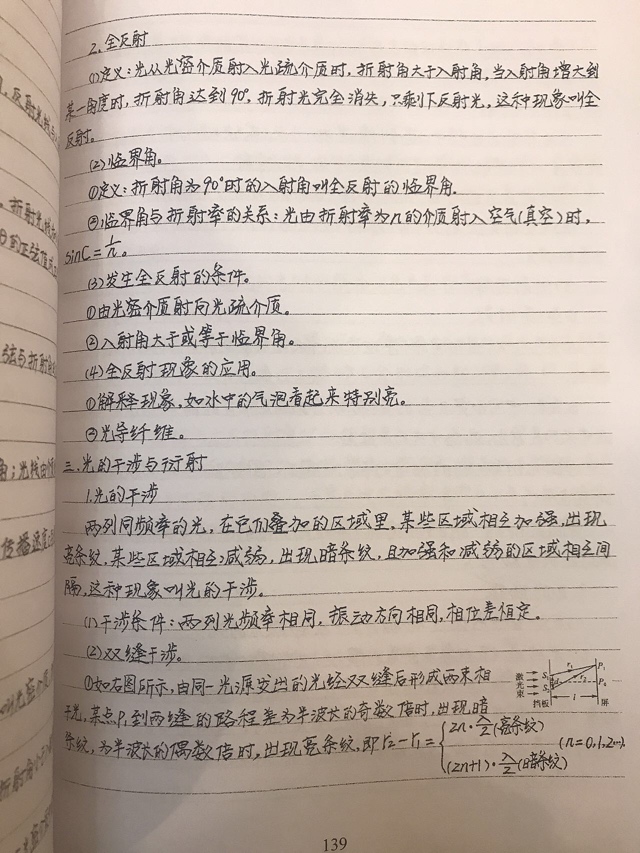 2. 全反射
(1)定义:光从光密介质射入光疏介质时,折射角大于入射角,当入射角增大到
某一角度时,折射角达到90°,折射光完全消失,只剩下反射光,这种现象叫全
反射。
(2)临界角。
①定义:折射角为90°时的入射角叫全反射的临界角.
②临界角与折射率的关系:光由折射率为n的介质射入空气(真空)时,
sinC=1/n。
(3)发生全反射的条件。
①由光密介质射向光疏介质。
②入射角大于或等于临界角。
(4)全反射现象的应用。
①解释现象,如水中的气泡看起来特别亮。
②光导纤维。
三.光的干涉与衍射
1.光的干涉
两列同频率的光,在它们叠加的区域里,某些区域相互加强,出现
亮条纹,某些区域相互减弱,出现暗条纹,且加强和减弱的区域相互间
隔,这种现象叫光的干涉。
(1)干涉条件:两列光频率相同,振动方向相同,相位差恒定。
(2)双缝干涉。
①如右图所示,由同一光源发出的光经双缝后形成两束相
干光,某点P₁到两缝的路程差为半波长的奇数倍时,出现暗
条纹,为半波长的偶数倍时,出现亮条纹,即r₂-r₁={2n·λ/2(亮条纹) (n=0,1,2…).
(2n+1)·λ/2(暗条纹)
激光束
S₁
S₂
r₁
r₂
P₁
P₀
l
挡板
屏
139